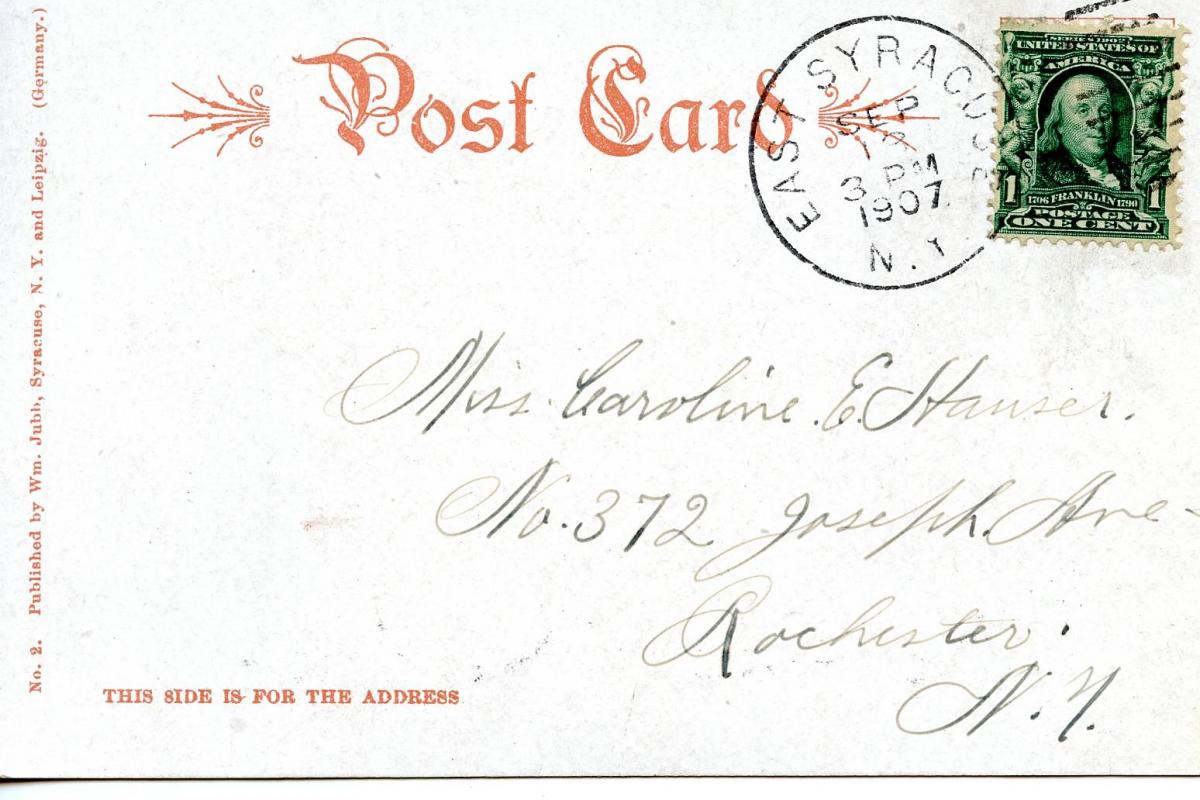 Post Card
EAST SYRACUSE
SEP
3 PM
1907
N.Y.
SERIES 1902
UNITED STATES OF
AMERICA
1 1706 FRANKLIN 1790 1
POSTAGE
ONE CENT
Miss. Caroline. E. Hauser.
No. 372 Joseph. Ave-
Rochester.
N.Y.
THIS SIDE IS FOR THE ADDRESS
No. 2. Published by Wm. Jubb, Syracuse, N. Y. and Leipzig. (Germany.)